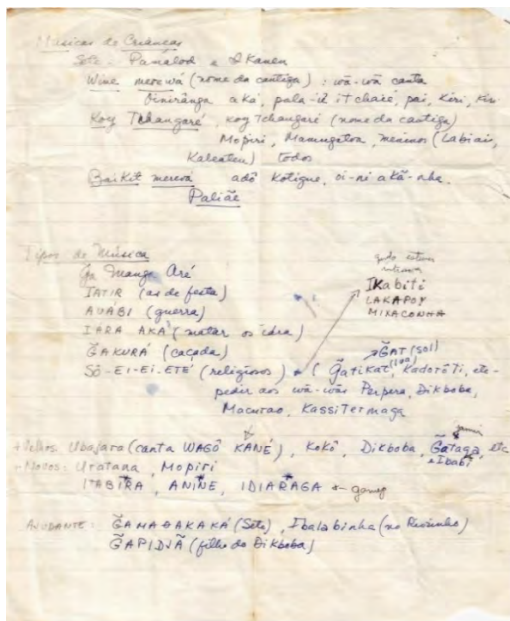 Músicas de Crianças
Sete - Pamalod e I Kanen
Wine merewá (nome da cantiga) : wã-wã canta
Oiniranga aká, pala-iê itchaié, pai, Kiri, Kiri
Koy Tchangaré, Koy Tchangaré (nome da cantiga)
Mopiri, Mamugetoa, meninos (Labiai,
Kalenten) todos
Baikit merewá adô Kotigue, oi-ni akã-nha.
Paliãe
Tipos de Música
Ga Mango Aré
IATIR (as de festa)
AUÁBI (guerra)
IARA AKÁ (matar os iára)
G̃AKURÁ (caçada)
Sô-EI-EI-ETÉ (religiosos) (G̃atikat, Kadorôti, etc-
pedir aos wã-wãs Perpera, Dikboba,
Macurao, Kassitermaga
IKabiti
LAKAPOY
MIXACONHA
G̃AT (sol)
(lua)
+ Velhos: Ubajara (canta WAGÔ KANÉ), Kokô, Dikboba, G̃ataga, etc
+ Ibabi
- Novos: Uratana, Mopiri
ITABIRA, ANINE, IDIARAGA ← gamep
AJUDANTE: G̃AMAƟAKAKÁ (Sete), Ibalabinha (no Riozinho)
G̃APIDJÃ (filho do Dikboba)